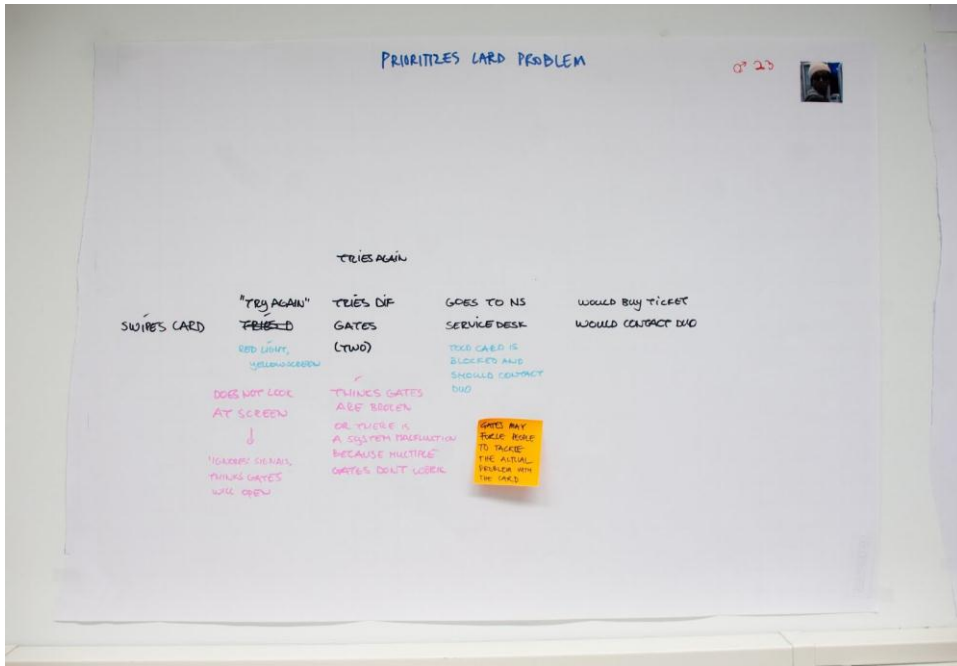 PRIORITIZES CARD PROBLEM
23
TRIES AGAIN
SWIPES CARD
"TRY AGAIN"
TRIES D
RED LIGHT,
YELLOW SCREEN
DOES NOT LOOK
AT SCREEN
"IGNORES" SIGNALS,
THINKS GATES
WILL OPEN
TRIES DIF
GATES
(TWO)
THINKS GATES
ARE BROKEN
OR THERE IS
A SYSTEM MALFUNCTION
BECAUSE MULTIPLE
GATES DON'T WORK
GOES TO NS
SERVICE DESK
TOLD CARD IS
BLOCKED AND
SHOULD CONTACT
DUO
GATES MAY
FORCE PEOPLE
TO TACKLE
THE ACTUAL
PROBLEM WITH
THE CARD
WOULD BUY TICKET
WOULD CONTACT DUO